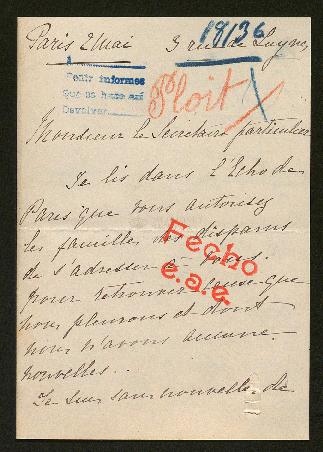 18136
Paris 2 Mai 3 rue de Luynes
Pedir informes
Que se haga así
Devolver
Ploit
Monsieur le Secrétaire particulier
Je lis dans l'Echo de
Paris que vous autorisez
les familles des disparus
de s'adresser à vous.
pour retrouver ceux que
nous pleurons et dont
nous n'avons aucune
nouvelles..
Je suis sans nouvelle de
Fecho
e.a.e.